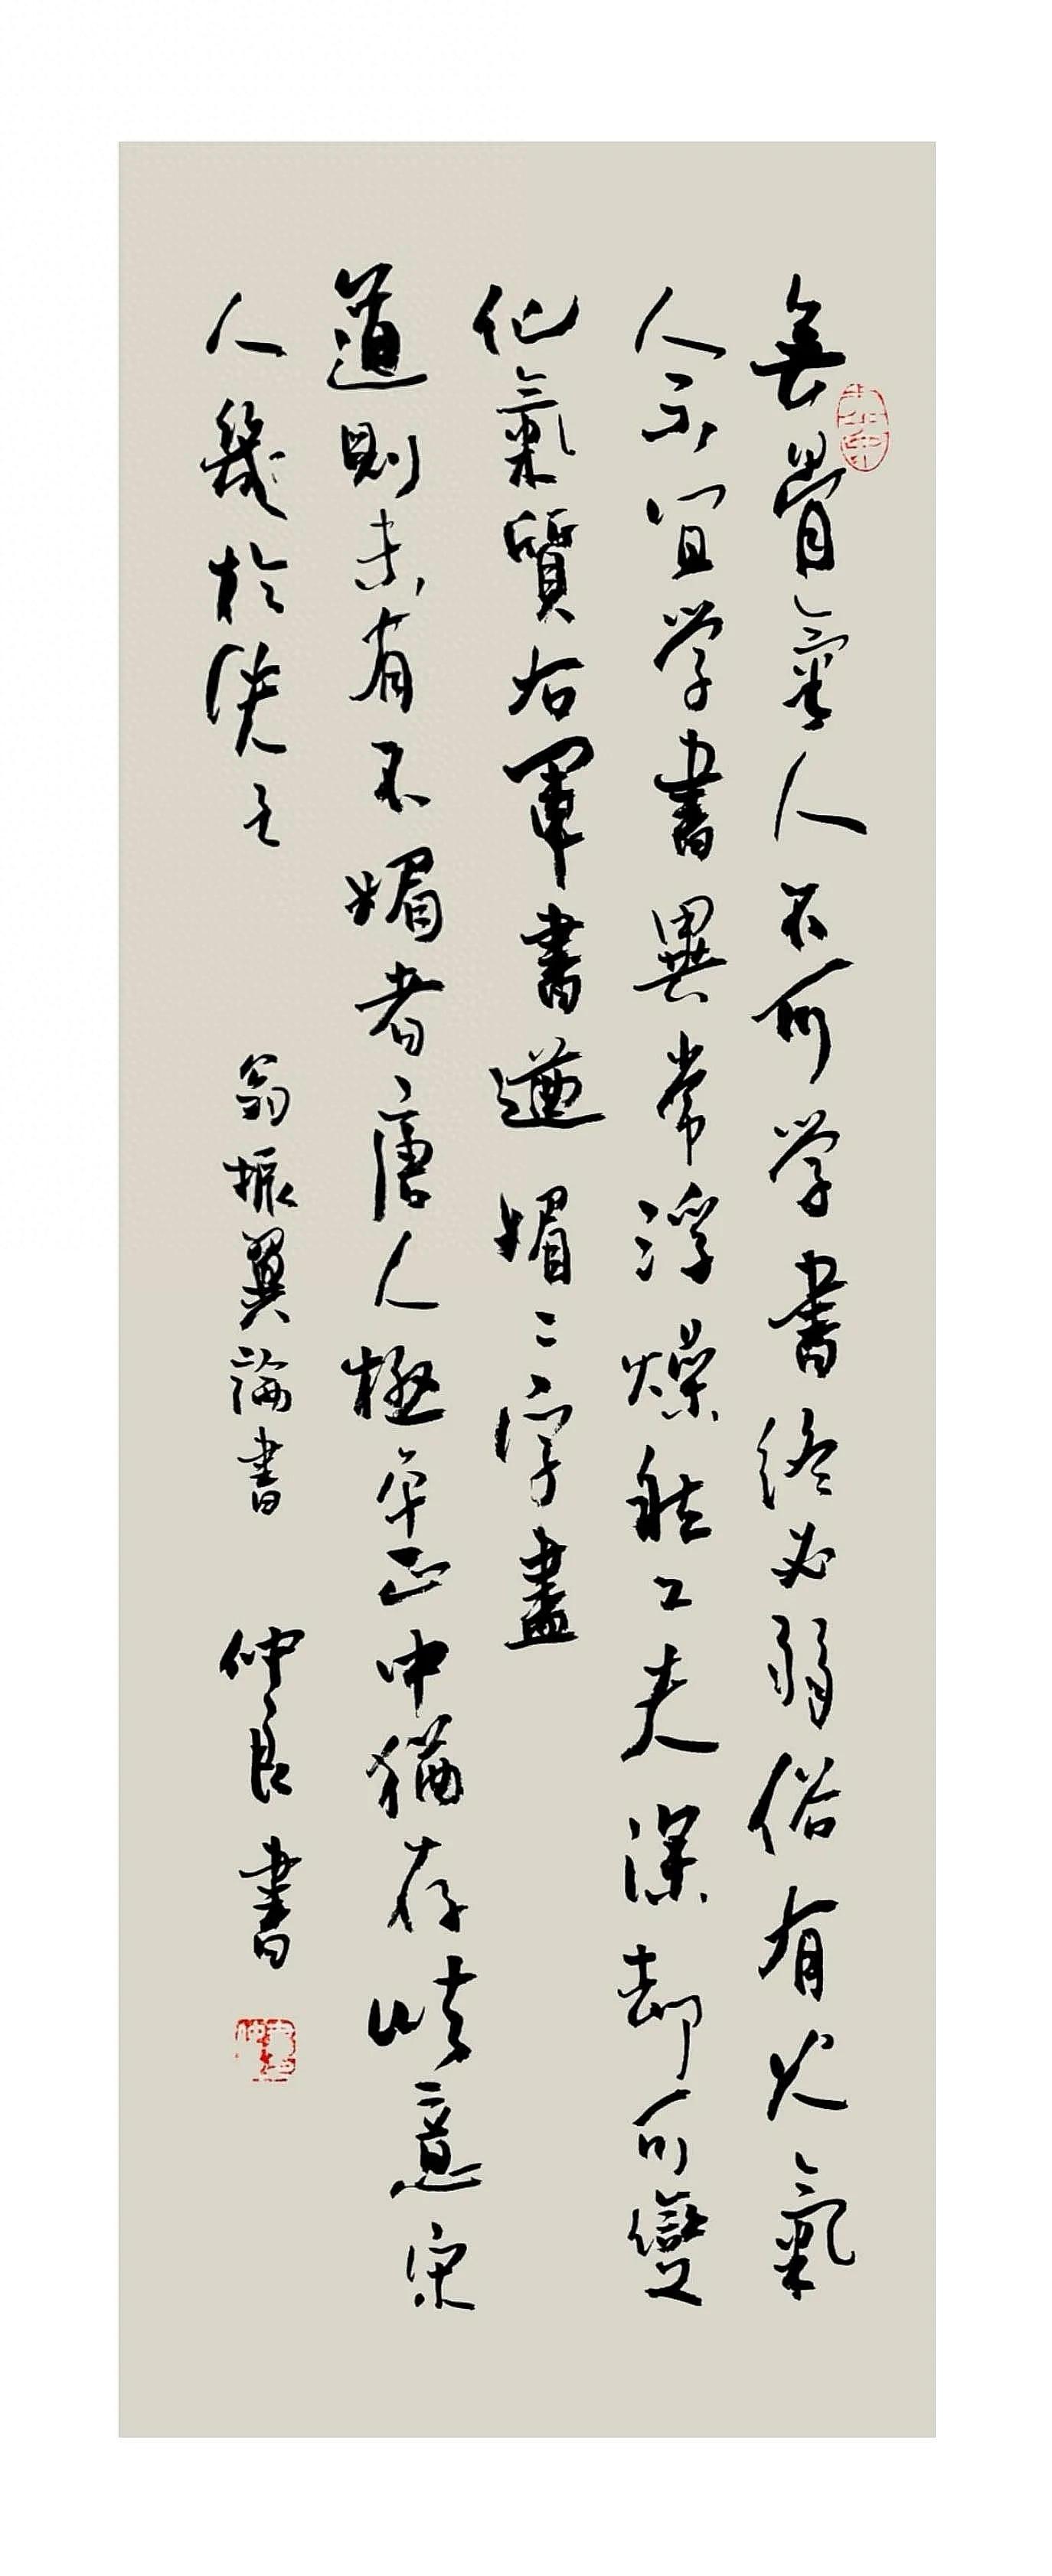 無骨氣人不可学書終必弱俗有火氣
人亦宜学書異常浮燥能工夫深却可變
化氣質右軍書遒媚二字盡
道則未有不媚者唐人極平正中猶存此意宋
人幾於洗之
翁振翼論書
仲良書